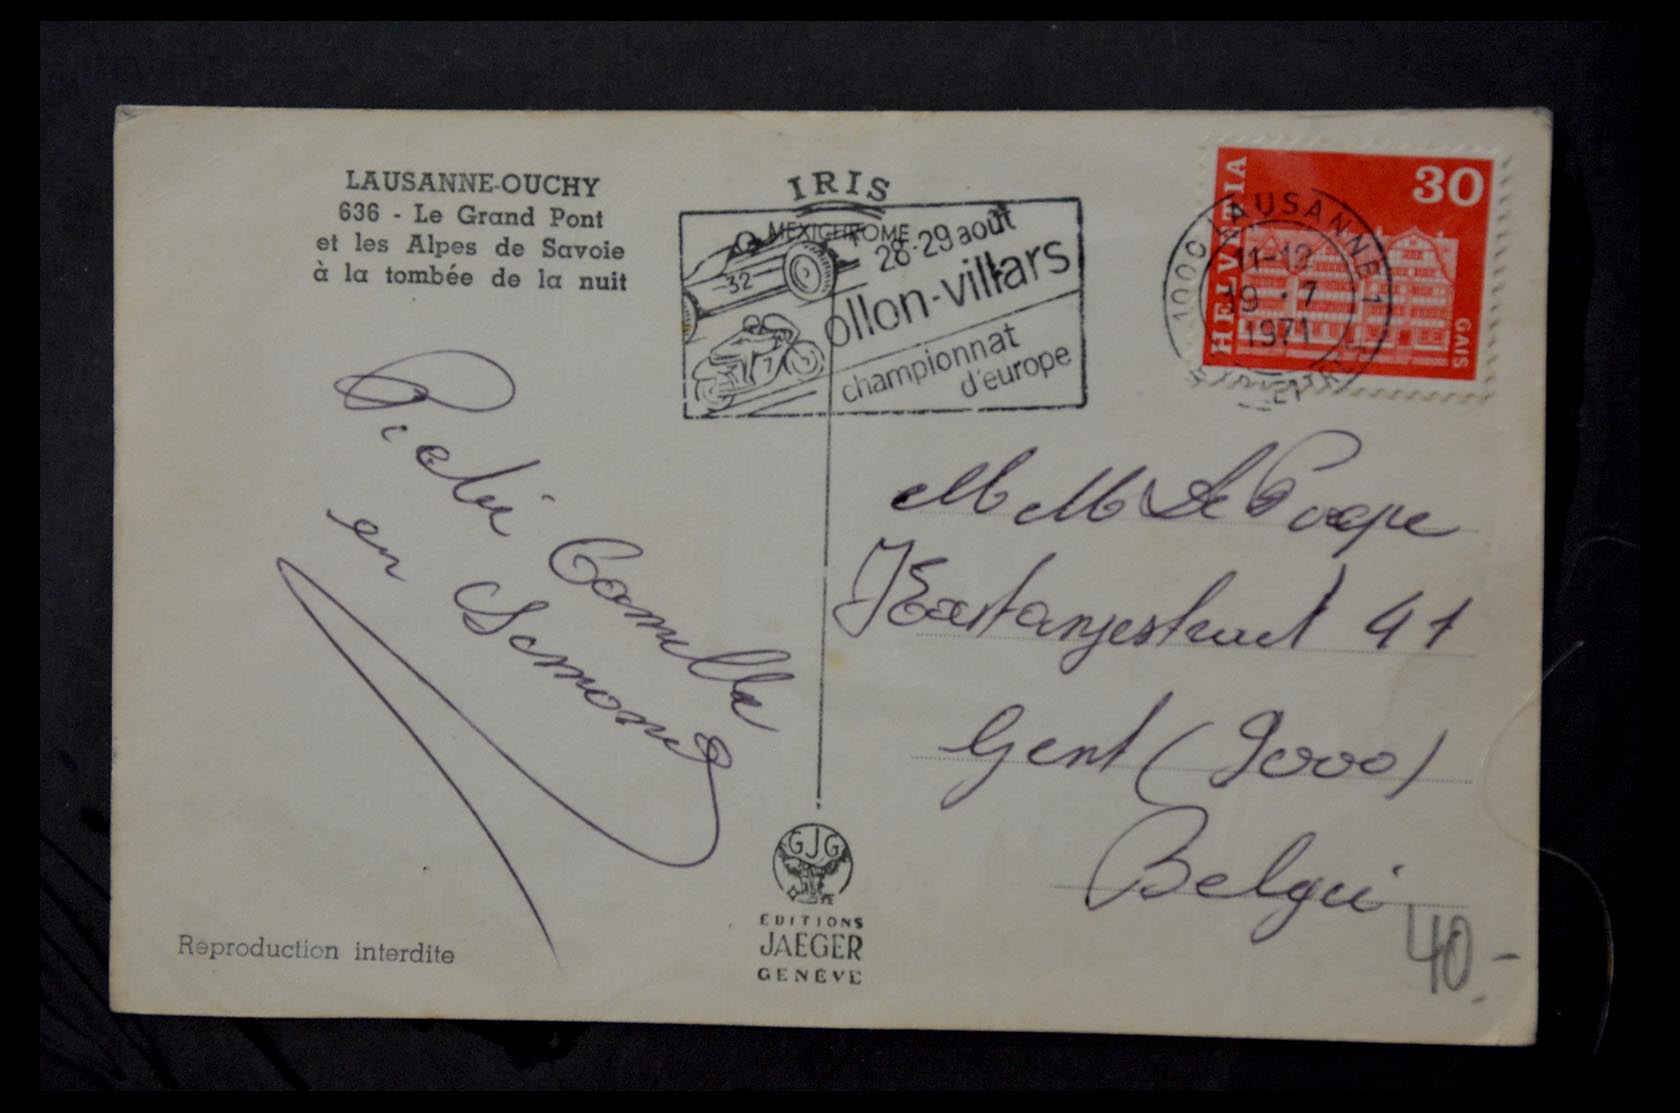 LAUSANNE-OUCHY
636 - Le Grand Pont
et les Alpes de Savoie
à la tombée de la nuit
IRIS
MEXICHROME
32
7
28-29 août
ollon-villars
championnat
d'europe
HELVETIA
30
GAIS
1000 LAUSANNE 1
11-12
19.7
1971
Camilla
en Simonne
M M De
Kastanjestraat 41
Gent (9000)
België
40.-
GJG
EDITIONS
JAEGER
GENÈVE
Reproduction interdite